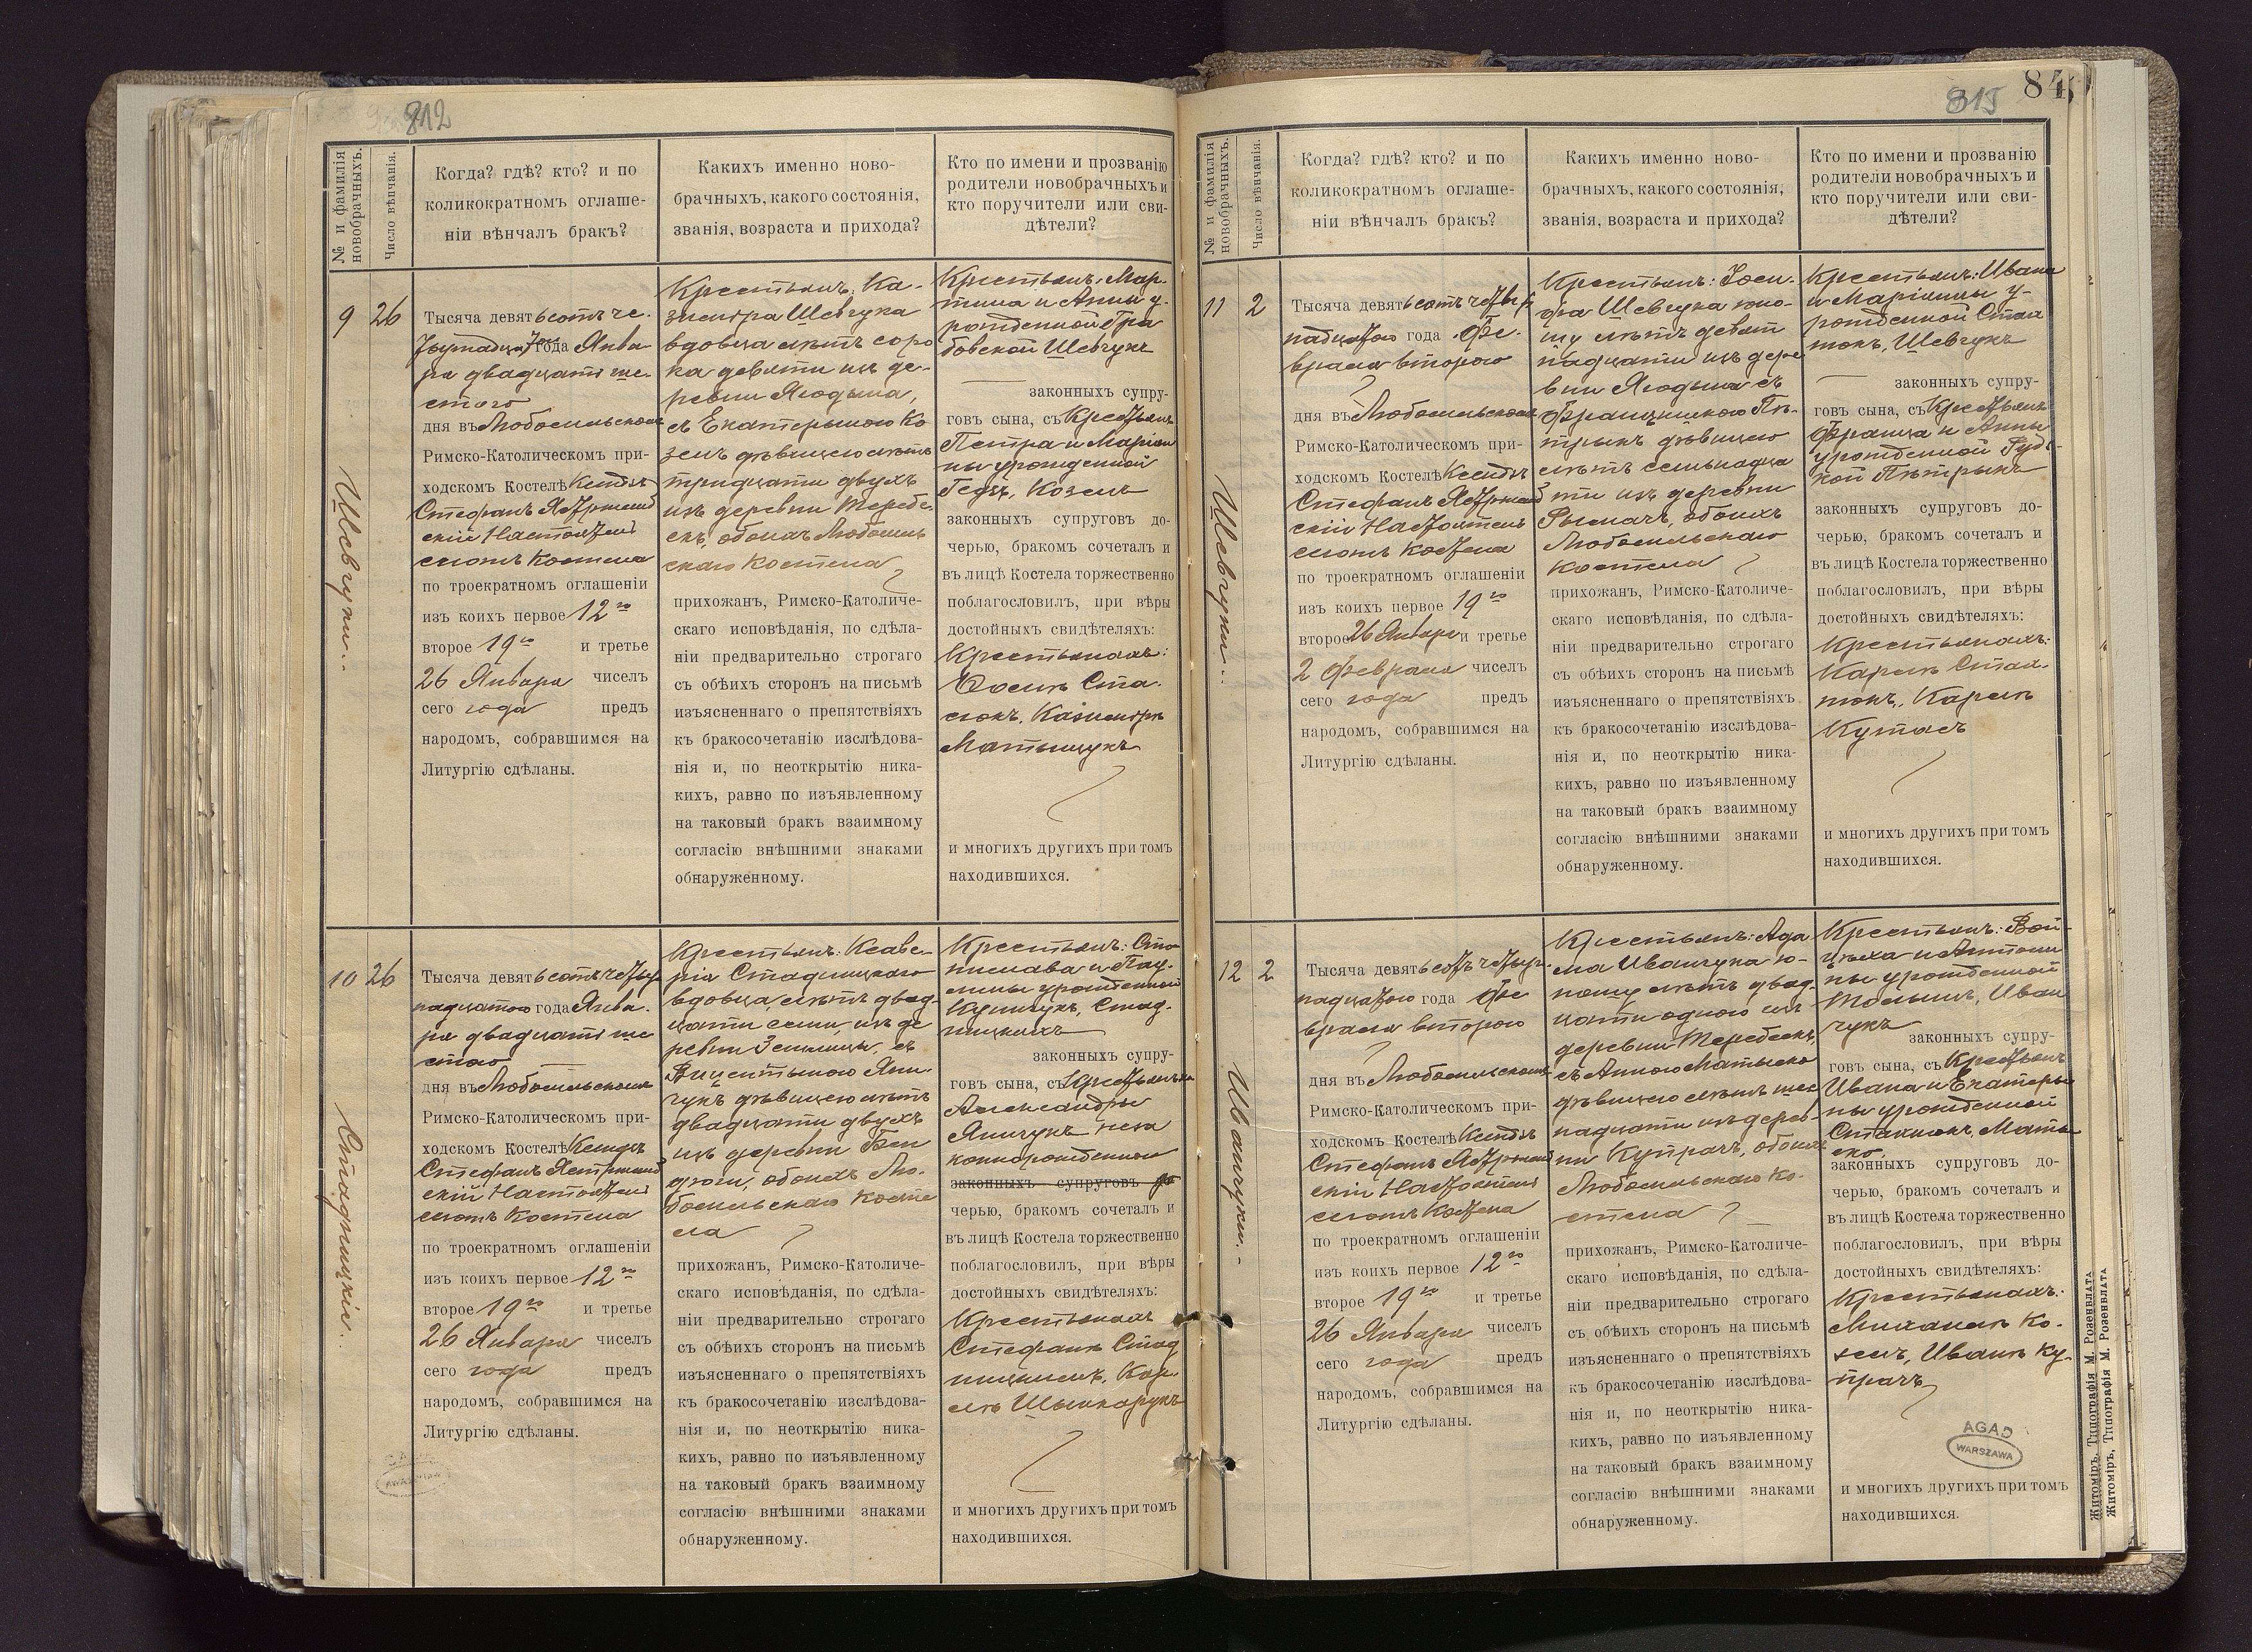 812
№ и фамилія новобрачныхъ.
Число вѣнчанія.
Когда? гдѣ? кто? и по
коликократномъ оглаше-
ніи вѣнчалъ бракъ?
Какихъ именно ново-
брачныхъ, какого состоянія,
званія, возраста и прихода?
Кто по имени и прозванію
родители новобрачныхъ и
кто поручители или сви-
дѣтели?
9
Шевчуки
26
Тысяча девятьсотъ че-
тырнадцатаго года Янва-
ря двадцать ше-
стого
дня въ Любомльскомъ
Римско-Католическомъ при-
ходскомъ Костелѣ Ксендзъ
Стефанъ Ястржемб
скій Настоятель
сиомъ Костела
по троекратномъ оглашеніи
изъ коихъ первое 12го
второе 19го и третье
26 Января чиселъ
сего года предъ
народомъ, собравшимся на
Литургію сдѣланы.
Крестьянъ: Ка-
зиміра Шевчука
вдовца лѣтъ соро
ка девяти изъ де-
ревни Ягодына,
съ Екатериною Ко
зелъ дѣвицею лѣтъ
тридцати двухъ
изъ деревни Теребе-
екъ, обоихъ Любомль
скаго Костела
прихожанъ, Римско-Католиче-
скаго исповѣданія, по сдѣла-
ніи предварительно строгаго
съ обѣихъ сторонъ на письмѣ
изъясненнаго о препятствіяхъ
къ бракосочетанію изслѣдова-
нія и, по неоткрытію ника-
кихъ, равно по изъявленному
на таковый бракъ взаимному
согласію внѣшними знаками
обнаруженному.
Крестьянъ: Мар-
тина и Анны у-
рожденной Гра
бовской Шевчукъ
законныхъ супру-
говъ сына, съ Крестьянъ
Петра и Марiан
ны урожденной
Гедзь, Козелъ
законныхъ супруговъ до-
черью, бракомъ сочеталъ и
въ лицѣ Костела торжественно
поблагословилъ, при вѣры
достойныхъ свидѣтеляхъ:
Крестьянахъ:
Осипъ Ста-
сюкъ, Казиміръ
Матыщукъ
и многихъ другихъ при томъ
находившихся.
10
Стадницкіе
26
Тысяча девятьсотъ четыр
надцатого года Янва-
ря двадцать ше
стого
дня въ Любомльскомъ
Римско-Католическомъ при-
ходскомъ Костелѣ Ксендзъ
Стефанъ Ястржемб
скій Настоятель
сиомъ Костела
по троекратномъ оглашеніи
изъ коихъ первое 12го
второе 19го и третье
26 Января чиселъ
сего года предъ
народомъ, собравшимся на
Литургію сдѣланы.
Крестьянъ: Ксаве-
рія Стадницкаго
вдовца, лѣтъ двад-
цати семи изъ де
ревни Землицы, съ
Вицентыною Яни-
чукъ дѣвицею лѣтъ
двадцати двухъ
изъ деревни Бен
дюги, обоихъ Лю-
бомльскаго Косте
ла
прихожанъ, Римско-Католиче-
скаго исповѣданія, по сдѣла-
ніи предварительно строгаго
съ обѣихъ сторонъ на письмѣ
изъясненнаго о препятствіяхъ
къ бракосочетанію изслѣдова-
нія и, по неоткрытію ника-
кихъ, равно по изъявленному
на таковый бракъ взаимному
согласію внѣшними знаками
обнаруженному.
Крестьянъ: Ста
нислава и Пау-
лины урожденной
Кушчукъ, Стад-
ницкихъ
законныхъ супру-
говъ сына, съ Крестьянки
Александры
Яничукъ неза
коннорожденною
законныхъ супруговъ до
черью, бракомъ сочеталъ и
въ лицѣ Костела торжественно
поблагословилъ, при вѣры
достойныхъ свидѣтеляхъ:
Крестьянахъ
Стефанъ Стад
ницкимъ, Кар-
лъ Шынкарукъ
и многихъ другихъ при томъ
находившихся.
84
813
№ и фамилія новобрачныхъ.
Число вѣнчанія.
Когда? гдѣ? кто? и по
коликократномъ оглаше-
ніи вѣнчалъ бракъ?
Какихъ именно ново-
брачныхъ, какого состоянія,
званія, возраста и прихода?
Кто по имени и прозванію
родители новобрачныхъ и
кто поручители или сви-
дѣтели?
11
Шевчуки
2
Тысяча девятьсотъ четыр
надцатого года Фе-
враля второго
дня въ Любомльскомъ
Римско-Католическомъ при-
ходскомъ Костелѣ Ксендзъ
Стефанъ Ястржемб
скій Настоятель
сиомъ Костела
по троекратномъ оглашеніи
изъ коихъ первое 19го
второе 26 Января и третье
2 Февраля чиселъ
сего года предъ
народомъ, собравшимся на
Литургію сдѣланы.
Крестьянъ: Іоси-
фа Шевчука юно-
шу лѣтъ девят
надцати изъ дере
вни Ягодына съ
Францишкою Пѣ-
трыкъ дѣвицею
лѣтъ семьнадца
ти изъ деревни
Рымачъ, обоихъ
Любомльскаго
Костела
прихожанъ, Римско-Католиче-
скаго исповѣданія, по сдѣла-
ніи предварительно строгаго
съ обѣихъ сторонъ на письмѣ
изъясненнаго о препятствіяхъ
къ бракосочетанію изслѣдова-
нія и, по неоткрытію ника-
кихъ, равно по изъявленному
на таковый бракъ взаимному
согласію внѣшними знаками
обнаруженному.
Крестьянъ: Ивана
и Маріанны у-
рожденной Стал
тюкъ, Шевчукъ
законныхъ супру-
говъ сына, съ Крестьянъ
Франца и Анны
урожденной Гудз-
кой Пѣтрыкъ
законныхъ супруговъ до-
черью, бракомъ сочеталъ и
въ лицѣ Костела торжественно
поблагословилъ, при вѣры
достойныхъ свидѣтеляхъ:
Крестьянахъ:
Карлъ Стал-
тюкъ, Карлъ
Кутасъ
и многихъ другихъ при томъ
находившихся.
12
Иванчуки
2
Тысяча девятьсотъ четыр-
надцатого года Фе
враля второго
дня въ Любомльскомъ
Римско-Католическомъ при-
ходскомъ Костелѣ Ксендзъ
Стефанъ Ястржемб
скій Настоятель
сиомъ Костела
по троекратномъ оглашеніи
изъ коихъ первое 12го
второе 19го и третье
26 Января чиселъ
сего года предъ
народомъ, собравшимся на
Литургію сдѣланы.
Крестьянъ: Ада
ма Иванчука ю-
ношу лѣтъ двад-
цати одного изъ
деревни Теребеекъ,
съ Анною Матыско
дѣвицею лѣтъ шес
надцати изъ дерев-
ни Купрачъ, обоихъ
Любомльскаго Ко-
стела
прихожанъ, Римско-Католиче-
скаго исповѣданія, по сдѣла-
ніи предварительно строгаго
съ обѣихъ сторонъ на письмѣ
изъясненнаго о препятствіяхъ
къ бракосочетанію изслѣдова-
нія и, по неоткрытію ника-
кихъ, равно по изъявленному
на таковый бракъ взаимному
согласію внѣшними знаками
обнаруженному.
Крестьянъ: Вой-
цѣха и Антони
ны урожденной
Иван
чукъ
законныхъ супру-
говъ сына, съ Крестьянъ
Ивана и Екатери
ны урожденной
Маты
ско
законныхъ супруговъ до-
черью, бракомъ сочеталъ и
въ лицѣ Костела торжественно
поблагословилъ, при вѣры
достойныхъ свидѣтеляхъ:
Крестьянахъ:
Михаилъ Ко-
зелъ, Иванъ Ку-
прачъ
AGAD
WARSZAWA
и многихъ другихъ при томъ
находившихся.
Житомiръ, Типографiя М. Розенблата
Житомiръ, Типографiя М. Розенблата